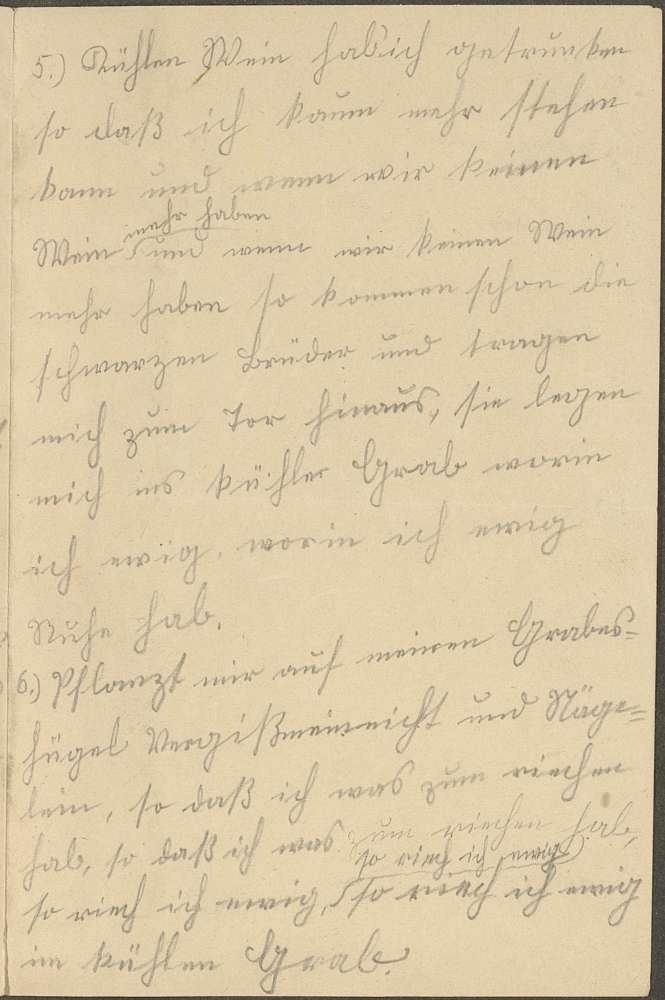 5.) Kühlen Wein hab ich getrunken
so daß ich kaum mehr stehen
kann und wenn wir keinen
mehr haben
Wein und wenn wir keinen Wein
mehr haben so kommen schon die
schwarzen Brüder und tragen
mich zum Tor hinaus, sie legen
mich ins kühler Grab worin
ich ewig, worin ich ewig
Ruhe hab.
6.) Pflanzt mir auf meinen Grabes-
hügel Vergißmeinnicht und Näge=
lein, so daß ich was zum riechen
hab, so daß ich was zum riechen hab,
so riech ich ewig
so riech ich ewig, so riech ich ewig
im kühlen Grab.